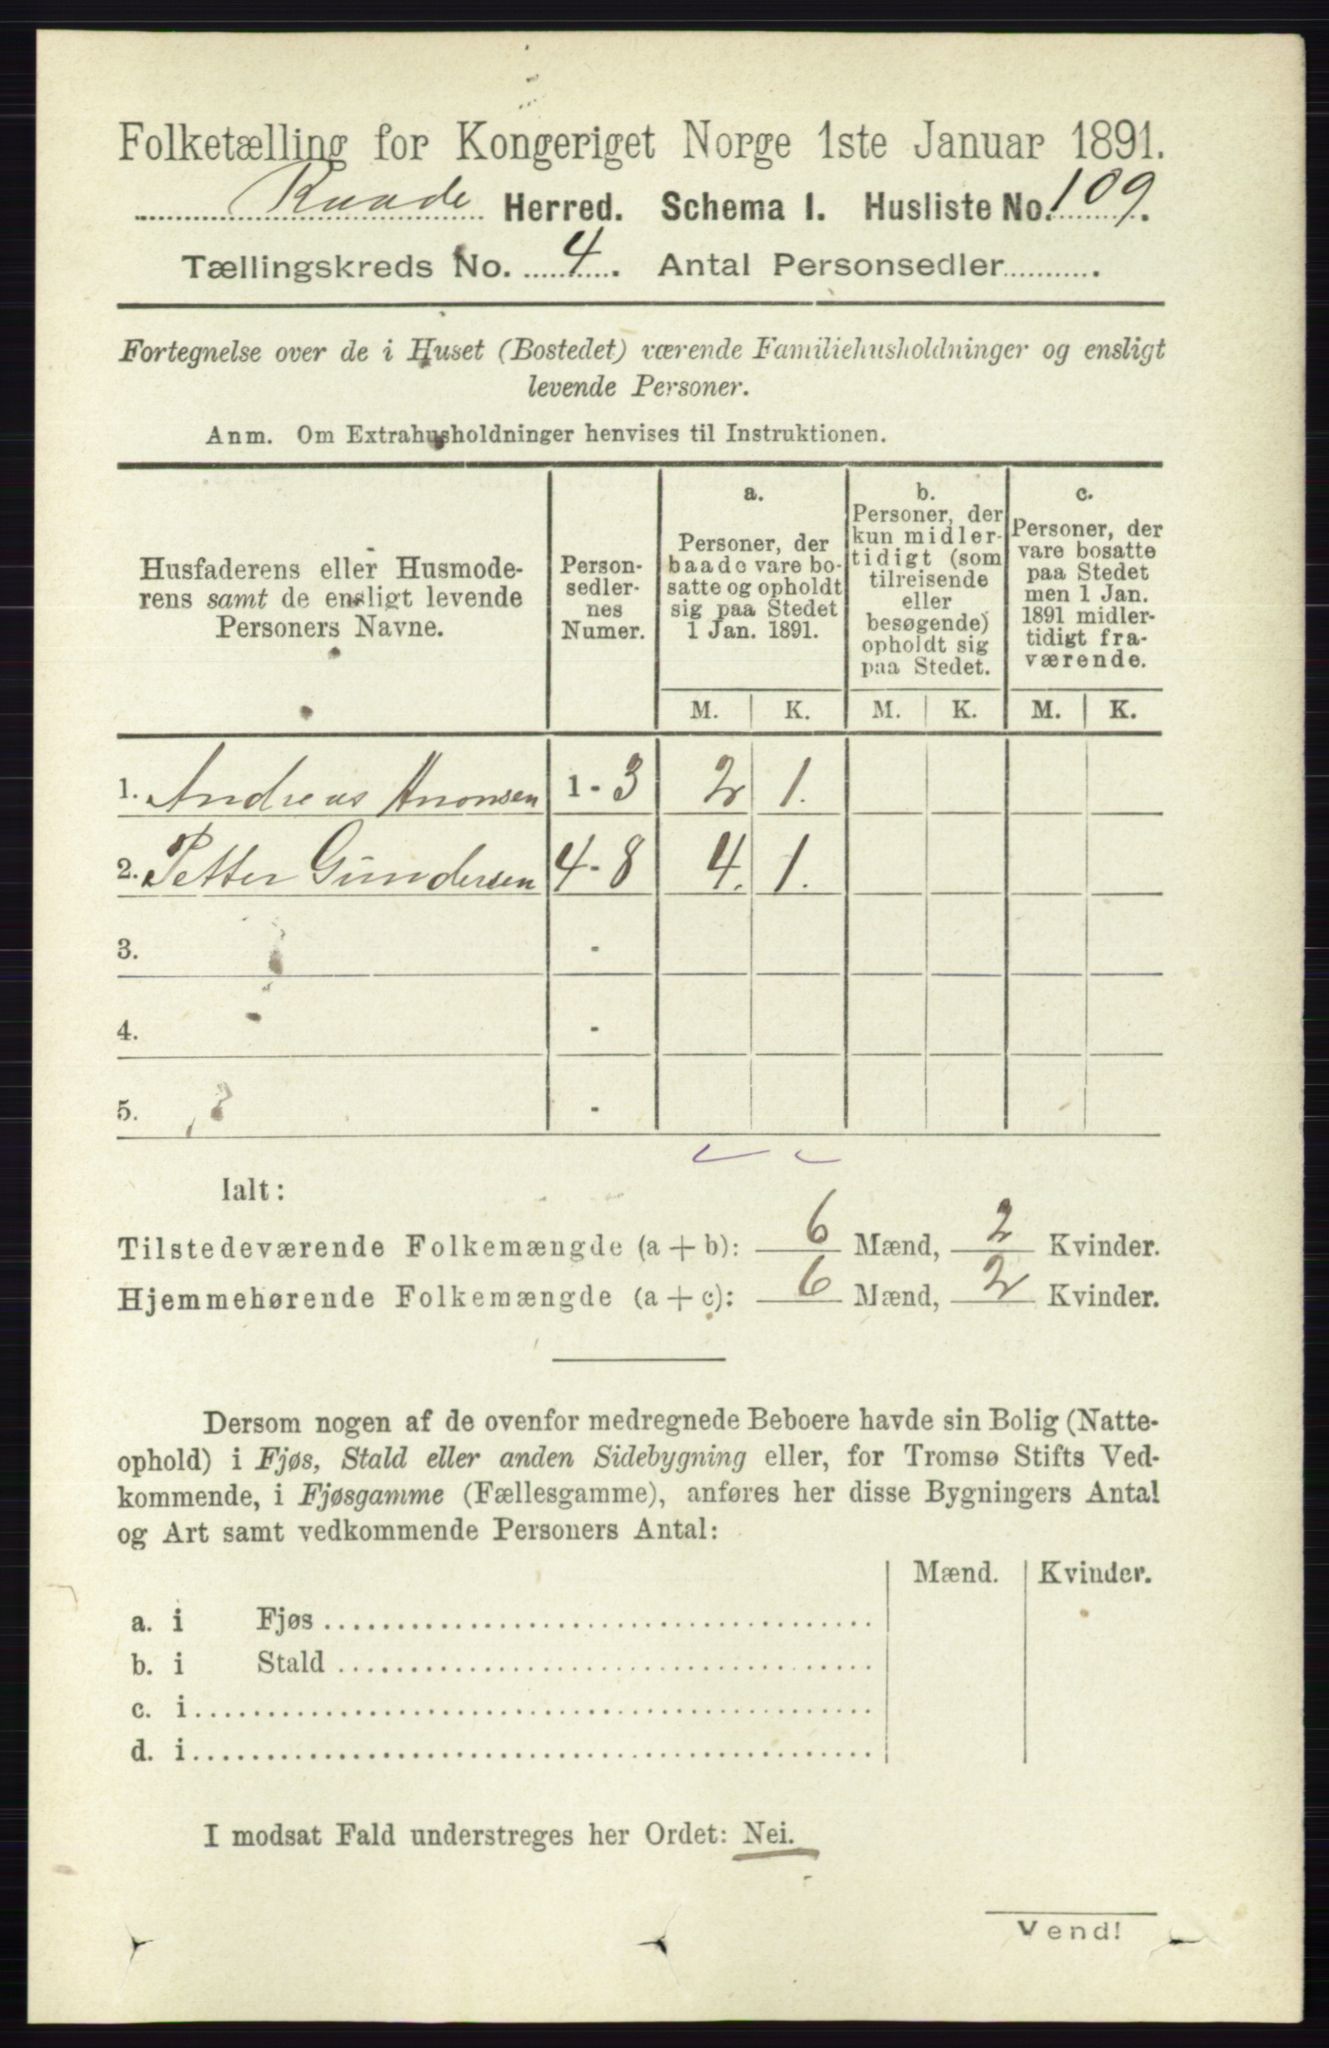 Folketælling for Kongeriget Norge 1ste Januar 1891.
Raade Herred. Schema I. Husliste No. 109.
Tællingskreds No. 4. Antal Personsedler .
Fortegnelse over de i Huset (Bostedet) værende Familiehusholdninger og ensligt
levende Personer.
Anm. Om Extrahusholdninger henvises til Instruktionen.
Husfaderens eller Husmode-
rens samt de ensligt levende
Personers Navne.
Person-
sedler-
nes
Numer.
a.
Personer, der
baade vare bo-
satte og opholdt
sig paa Stedet
1 Jan. 1891.
b.
Personer, der
kun midler-
tidigt (som
tilreisende
eller
besøgende)
opholdt sig
paa Stedet.
c.
Personer, der
vare bosatte
paa Stedet
men 1 Jan.
1891 midler-
tidigt fra-
værende.
M. K. M. K. M. K.
1. Andreas 1 - 3 2 1.
2. Petter Gundersen 4 - 8 4. 1.
3. -
4. -
5. -
Ialt:
Tilstedeværende Folkemængde (a + b): 6 Mænd, 2 Kvinder.
Hjemmehørende Folkemængde (a + c): 6 Mænd, 2 Kvinder.
Dersom nogen af de ovenfor medregnede Beboere havde sin Bolig (Natte-
ophold) i Fjøs, Stald eller anden Sidebygning eller, for Tromsø Stifts Ved-
kommende, i Fjøsgamme (Fællesgamme), anføres her disse Bygningers Antal
og Art samt vedkommende Personers Antal:
Mænd. Kvinder.
a. i Fjøs
b. i Stald
c. i
d. i
I modsat Fald understreges her Ordet: Nei.
Vend!